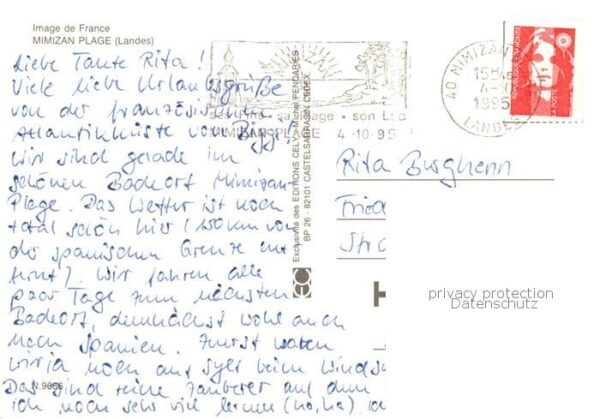 Image de France
MIMIZAN PLAGE (Landes)
Liebe Tante Rita!
Viele liebe Urlaubsgrüße
von der französischen
Atlantikküste von Biggi.
Wir sind gerade im
schönen Badeort Mimizan-
Plage. Das Wetter ist noch
total schön hier (150 km von
der spanischen Grenze ent
fernt). Wir fahren alle
paar Tage zum nächsten
Badeort, demnächst wohl auch
nach Spanien. Zuerst waren
wir ja noch auf Sylt beim Winds
Das sind reine Zauberer auf dem
ich noch sehr viel lernen (ha, ha)
N.9666
son Lac
MIMIZAN PLAGE 4-10-95
Exclusivité des EDITIONS CELY
BP 26 - 82101 CASTELSARRASIN CEDEX
40 MIMIZAN
15H
4-10
1995
LANDES
LA POSTE
Rita Burghenn
Fried
Str
privacy protection
Datenschutz